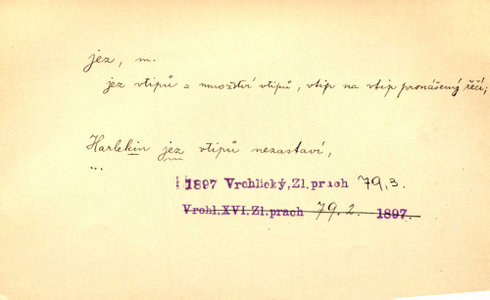 jez, m.
jez vtipů = množství vtipů, vtip na vtip pronášený řečí;
Harlekin jez vtipů nezastaví,
...
1897 Vrchlický, Zl. prach 79,3.
Vrchl.XVI. Zl. prach 79.2. 1897.